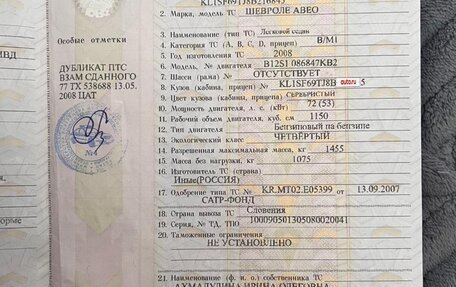 МВД
Особые отметки
ДУБЛИКАТ ПТС
ВЗАМ СДАННОГО
77 ТХ 538688 13.05.
2008 ЦАТ
2. Марка, модель ТС ШЕВРОЛЕ АВЕО
3. Наименование (тип ТС) Легковой седан
4. Категория ТС (А, В, С, D, прицеп) B/M1
5. Год изготовления ТС 2008
6. Модель, № двигателя B12S1 086847KB2
7. Шасси (рама) № ОТСУТСТВУЕТ
8. Кузов (кабина, прицеп) № KL1SF69TJ8B auto.ru 5
9. Цвет кузова (кабины, прицепа) СЕРЕБРИСТЫЙ
10. Мощность двигателя, л. с. (кВт) 72 (53)
11. Рабочий объем двигателя, куб. см 1150
12. Тип двигателя Бензиновый на бензине
13. Экологический класс ЧЕТВЁРТЫЙ
14. Разрешенная максимальная масса, кг 1455
15. Масса без нагрузки, кг 1075
16. Изготовитель ТС (страна)
Иные(РОССИЯ)
17. Одобрение типа ТС № KR.MT02.E05399 от 13.09.2007
САТР-ФОНД
18. Страна вывоза ТС Словения
19. Серия, № ТД, ТПО 100090501305080020041
20. Таможенные ограничения
НЕ УСТАНОВЛЕНО
21. Наименование (ф. и. о.) собственника ТС
ИРИНА ОЛЕГОВНА